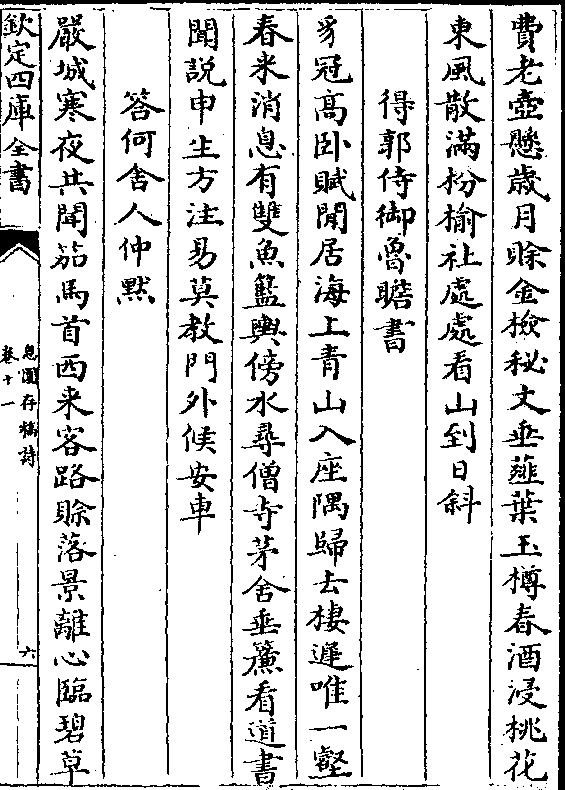 費老壺懸歳月賖金檢秘文垂薤葉玉樽春酒浸桃花
東風散滿枌榆社處處看山到日斜
得郭侍御魯瞻書
豸冠髙卧賦閒居海上青山入座隅歸去棲遲唯一壑
春來消息有雙魚籃輿傍水尋僧寺茅舍垂簾看道書
聞説申生方注易莫教門外候安車
答何舍人仲黙
嚴城寒夜共聞笳馬首西來客路賖落景離心臨碧草
欽定四庫全書
息園存稿詩
卷十一
六